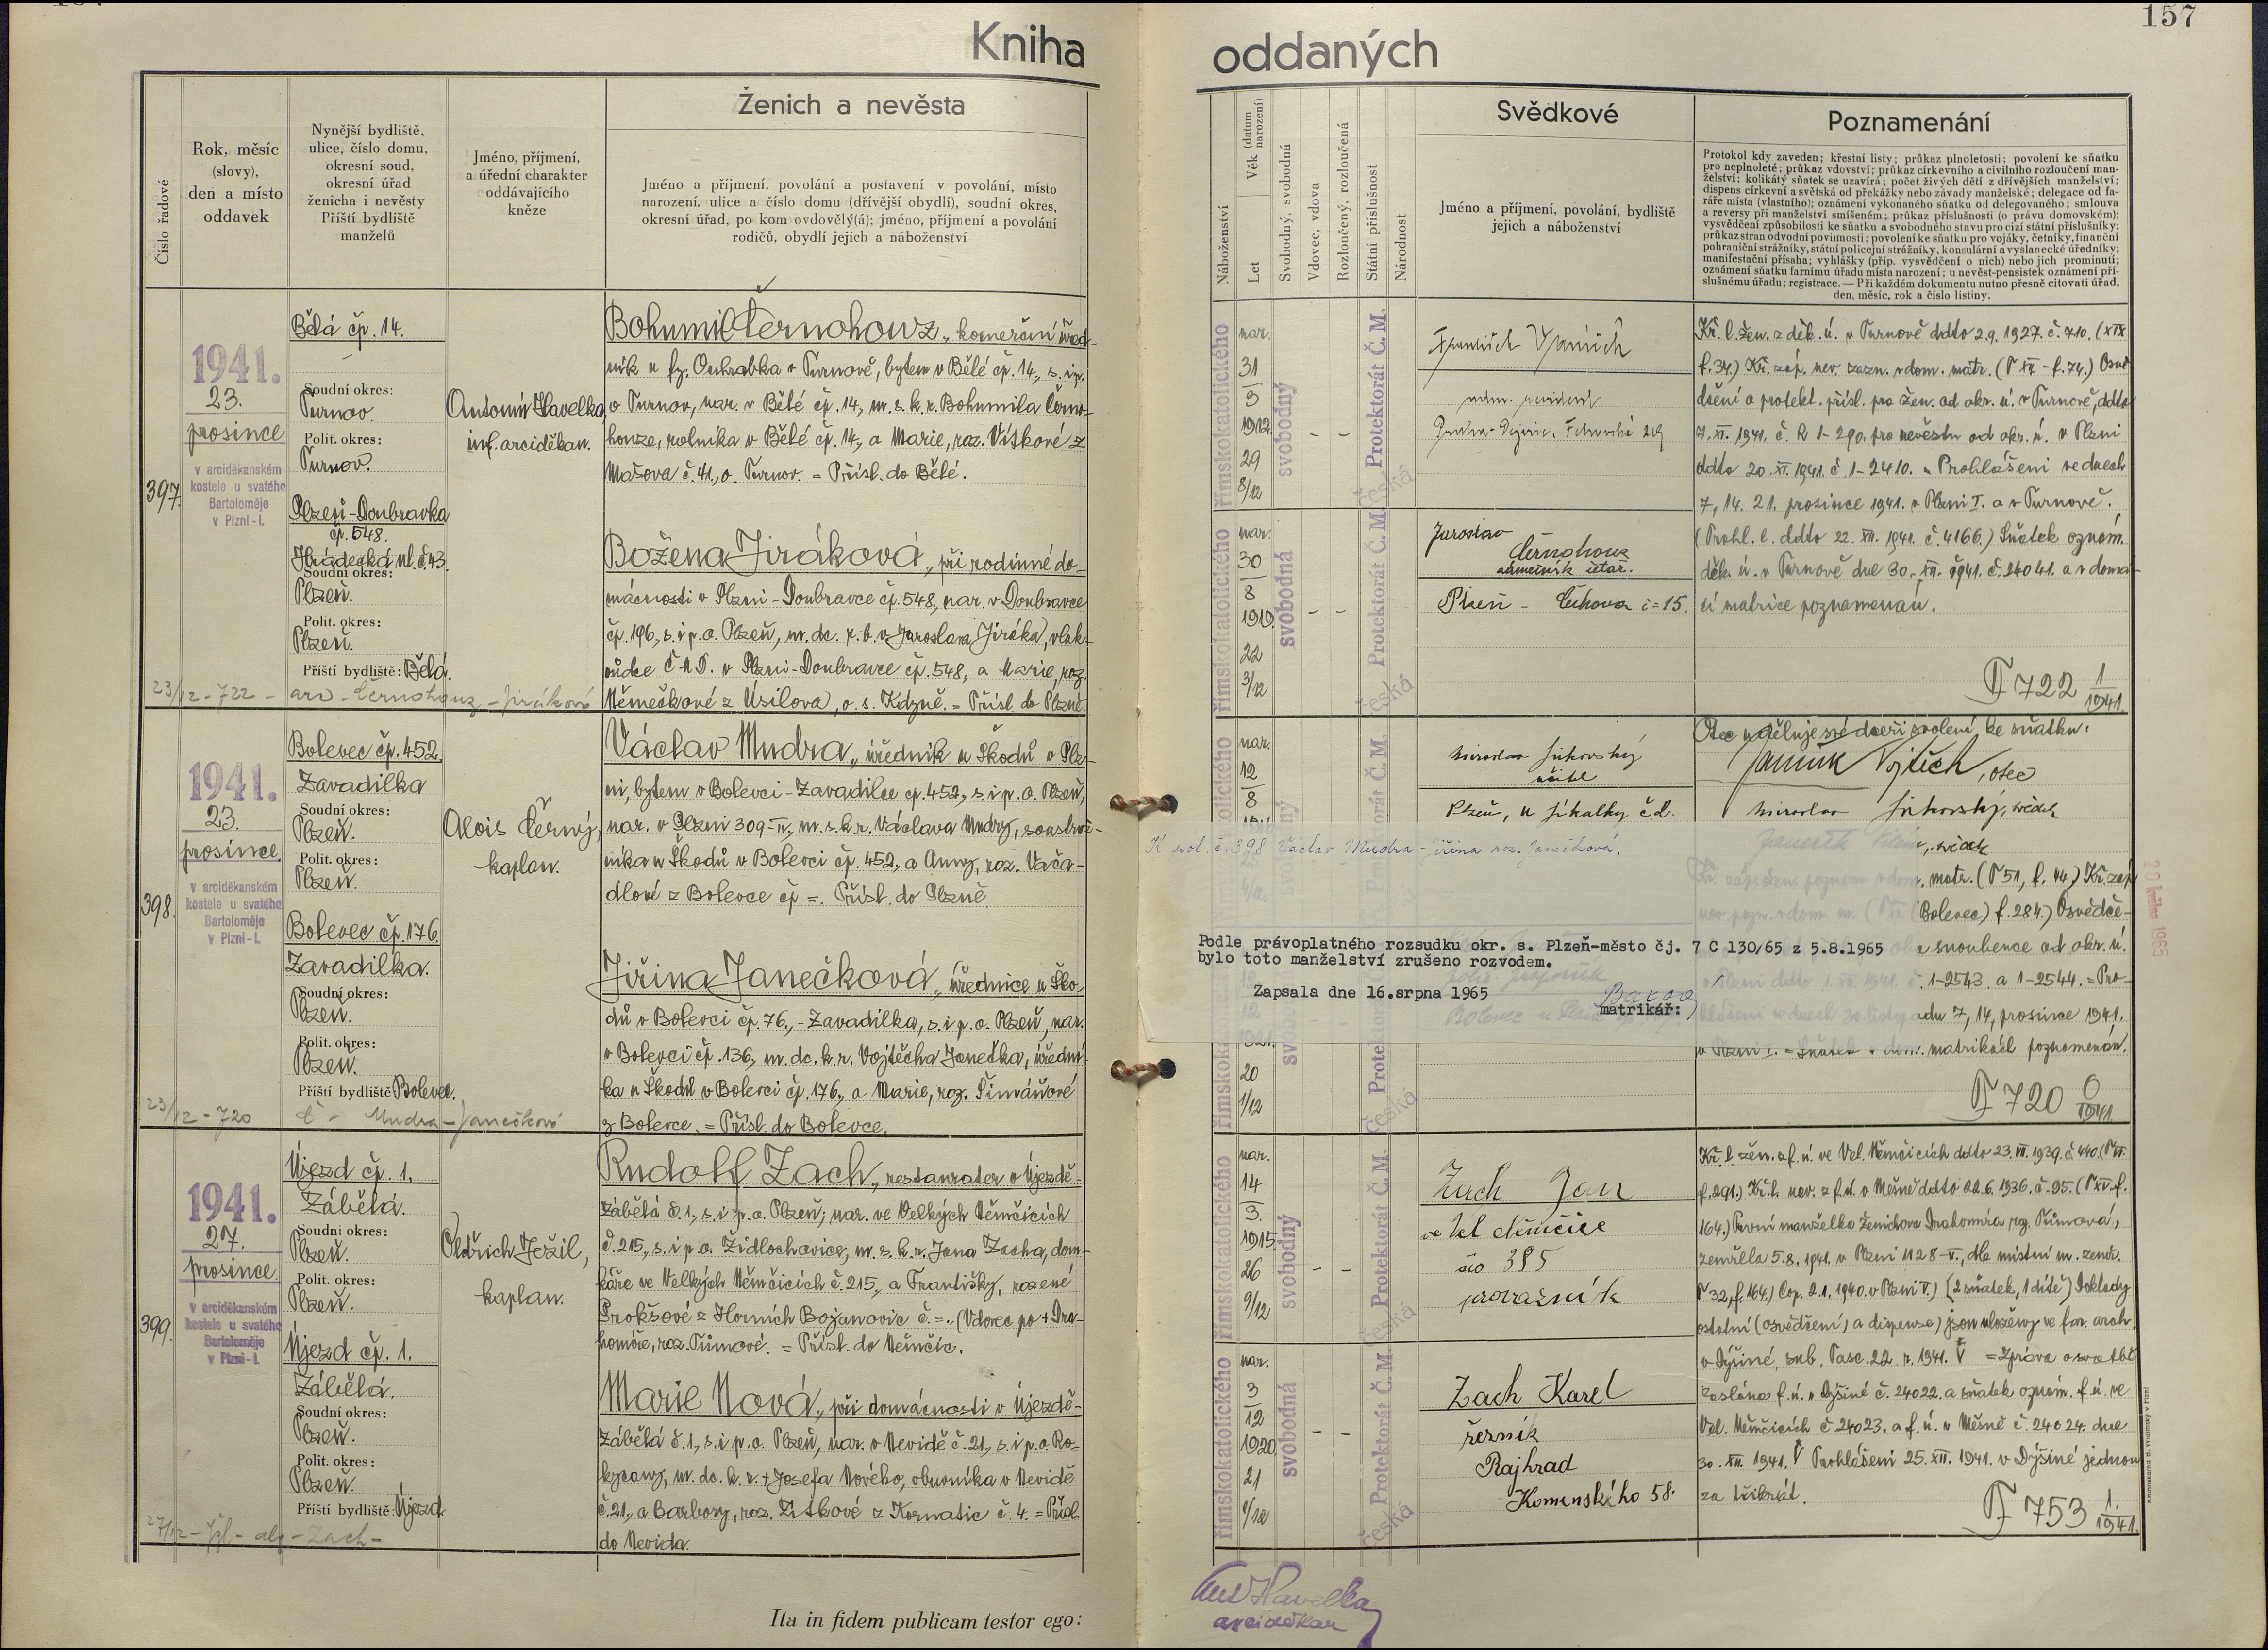 157
Kniha oddaných
Číslo řadové
Rok, měsíc
(slovy),
den a místo
oddavek
Nynější bydliště,
ulice, číslo domu,
okresní soud,
okresní úřad
ženicha i nevěsty
Příští bydliště
manželů
Jméno, příjmení,
a úřední charakter
oddávajícího
kněze
Ženich a nevěsta
Jméno a příjmení, povolání a postavení v povolání, místo
narození, ulice a číslo domu (dřívější obydlí), soudní okres,
okresní úřad, po kom ovdovělý(á); jméno, příjmení a povolání
rodičů, obydlí jejich a náboženství
Náboženství
Věk (datum narození)
Let
Svobodný, svobodná
Vdovec, vdova
Rozloučený, rozloučená
Státní příslušnost
Národnost
Svědkové
Jméno a příjmení, povolání, bydliště
jejich a náboženství
Poznamenání
Protokol kdy zaveden; křestní listy; průkaz plnoletosti; povolení ke sňatku
pro neplnoleté; průkaz vdovství; průkaz církevního a civilního rozloučení man-
želství; kolikátý sňatek se uzavírá; počet živých dětí z dřívějších manželství;
dispens církevní a světská od překážky nebo závady manželské; delegace od fa-
ráře místa (vlastního); oznámení vykonaného sňatku od delegovaného; smlouva
a reversy při manželství smíšeném; průkaz příslušnosti (o právu domovském);
vysvědčení způsobilosti ke sňatku a svobodného stavu pro cizí státní příslušníky;
průkaz stran odvodní povinnosti; povolení ke sňatku pro vojáky, četníky, finanční
pohraniční strážníky, státní policejní strážníky, konsulární a vyslanecké úředníky;
manifestační přísaha; vyhlášky (příp. vysvědčení o nich) nebo jich prominutí;
oznámení sňatku farnímu úřadu místa narození; u nevěst-pensistek oznámení pří-
slušnému úřadu; registrace. — Při každém dokumentu nutno přesně citovati úřad,
den, měsíc, rok a číslo listiny.
397.
1941.
23.
prosince
v arciděkanském
kostele u svatého
Bartoloměje
v Plzni-I.
Bělá čp. 14.
Soudní okres:
Turnov.
Polit. okres:
Turnov.
Plzeň-Doubravka
čp. 548.
Hrádecká ul. č. 43.
Soudní okres:
Plzeň.
Polit. okres:
Plzeň.
Příští bydliště: Bělá.
Antonín Havelka,
inf. arciděkan.
Bohumil Černohouz, komerční úřed-
ník u fy. Ouhrabka v Turnově, bytem v Bělé čp. 14., s. i p.
o Turnov, nar. v Bělé čp. 14., m. s. k. r. Bohumila Černo-
houze, rolníka v Bělé čp. 14., a Marie, roz. Vítkové z
Mašova č. 41., o. Turnov. = Přísl. do Bělé.
Božena Jiráková, při rodinné do-
mácnosti v Plzni-Doubravce čp. 548., nar. v Doubravce
čp. 196., s. i p. o. Plzeň, m. dc. Jaroslava Jiráka, vlak-
vůdce Č M D. v Plzni-Doubravce čp. 548., a Marie, roz.
Němečkové z Úsilova, o. s. Kdyně. = Přísl. do Plzně.
23/12 - 722 - arc - Černohouz - Jiráková
římskokatolického
nar.
31
3
1912.
29
8/12
svobodný
- -
Protektorát Č. M.
česká
římskokatolického
nar.
30
8
1919.
22
3/12
svobodná
- -
Protektorát Č. M.
česká
František
Jaroslav
Černohouz
Plzeň - č=15.
Kř. l. žen. z děk. ú. v Turnově ddto 2. 9. 1927. č. 710. (XIX
f. 34.) Kř. záp. nev. zazn. v dom. matr. (T XV. - f. 74.) Osvě
dčení o protekt. přísl. pro žen. od okr. ú. v Turnově, ddto
7. XI. 1941. č. R 1-290. pro nevěstu od okr. ú. v Plzni
ddto 20. XI. 1941. č. 1-2410. = Prohlášeni ve dnech
7, 14. 21. prosince 1941. v Plzni I. a v Turnově.
(Prohl. l. ddto 22. XII. 1941. č. 4166.) Sňatek oznám.
děk. ú. v Turnově dne 30. XII. 1941. č. 24041. a v domá-
cí matrice poznamenán.
F 722 1/1941
398.
1941.
23.
prosince.
v arciděkanském
kostele u svatého
Bartoloměje
v Plzni-I.
Bolevec čp. 452.
Zavadilka
Soudní okres:
Plzeň.
Polit. okres:
Plzeň.
Bolevec čp. 176.
Zavadilka.
Soudní okres:
Plzeň.
Polit. okres:
Plzeň.
Příští bydliště Bolevec.
Alois Černý,
kaplan.
Václav Mudra, úředník u Škodů v Plz-
ni, bytem v Bolevci-Zavadilce čp. 452., s. i p. o. Plzeň,
nar. v Plzni 309-IV., m. s. k. r. Václava Mudry, soustruž-
níka u Škodů v Bolevci čp. 452., a Anny, roz. Vača-
dlové z Bolevce čp =. Přísl. do Plzně.
Jiřina Janečková, úřednice u Ško-
dů v Bolevci čp. 76., - Zavadilka, s. i p. o. Plzeň, nar.
v Bolevci čp. 136., m. dc. k. r. Vojtěcha Janečka, úřední-
ka u Škodů v Bolevci čp. 176., a Marie, roz. Šimáňové
z Bolevce. = Přísl. do Bolevce.
23/12 - 720 č - Mudra - Janečková
nar.
12
8
20
1/12
Protektorát Č. M.
česká
Miroslav Jirkovský
učitel
Plzeň, u Jikalky č. 2.
Otec uděluje své dceři svolení ke sňatku.
Janeček Vojtěch, otec
Miroslav Jirkovský, svědek
, svědek
. matr. (T 51, f. 44.) Kř. záp
(Bolevec) f. 284.) Osvědče-
snoubence od okr. ú.
1-2543. a 1-2544. = Pro-
7, 14, prosince 1941.
v Plzni I. = Sňatek v dom. matrikách poznamenán.
F 720 0/1941.
20 května 1965
K pol. č. 398 Václav Mudra - Jiřina roz. Janečková.
Podle právoplatného rozsudku okr. s. Plzeň-město čj. 7 C 130/65 z 5.8.1965
bylo toto manželství zrušeno rozvodem.
Zapsala dne 16.srpna 1965
matrikář:
399.
1941.
27.
prosince.
v arciděkanském
kostele u svatého
Bartoloměje
v Plzni-I.
Újezd čp. 1.
Zábělá.
Soudní okres:
Plzeň.
Polit. okres:
Plzeň.
Újezd čp. 1.
Zábělá.
Soudní okres:
Plzeň.
Polit. okres:
Plzeň.
Příští bydliště: Újezd.
Oldřich Ježil,
kaplan.
Rudolf Zach, restaurater v Újezdě-
Zábělá č. 1., s. i p. o. Plzeň; nar. ve Velkých Němčicích
č. 215., s. i p. o. Židlochovice, m. s. k. r. Jana Zacha, dom-
káře ve Velkých Němčicích č. 215., a Františky, rozené
Prokšové z Horních Bojanovic č. =. (Vdovec po + Dra-
homíře, roz. Tůmové. = Přísl. do Němčic.
Marie Nová, při domácnosti v Újezdě-
Zábělá č. 1., s. i p. o. Plzeň, nar. v Nevidě č. 21., s. i p. o. Ro-
kycany, m. dc. k. r. + Josefa Nového, obuvníka v Nevidě
č. 21., a Barbory, roz. Zítkové z Kornatic č. 4. = Přísl.
do Nevida.
římskokatolického
nar.
14
3.
1915.
26
9/12
svobodný
- -
Protektorát Č. M.
česká
římskokatolického
nar.
3
12
1920.
21
1/12
svobodná
- -
Protektorát Č. M.
česká
Zach Jan
ve Vel Němčice
čís 385
provazník
Zach Karel
řezník
Rajhrad
Komenského 58.
Kř. l. žen. z f. ú. ve Vel. Němčicích ddto 23. VII. 1939. č. 440. (T VII.
f. 291.) Kř. l. nev. z f. ú. v Mešně ddto 22. 6. 1936. č. 95. (T XII. f.
164.) První manželka ženichova Drahomíra roz. Tůmová,
zemřela 5. 8. 1941. v Plzni 1128-II., dle místní m. zemř.
T 32, f. 164.) Cop. 2. 1. 1940. v Plzni V.) [2 sňatek, 1 dítě] Doklady
ostatní (osvědčení, a dispense) jsou uloženy ve far. arch.
v Dýšině, sub. Fasc. 22. r. 1941. = Zpráva o svatbě
zaslána f. ú. v Dýšině č. 24022. a sňatek oznám. f. ú. ve
Vel. Němčicích č. 24023. a f. ú. v Mešně č. 24024. dne
30. XII. 1941. Prohlášeni 25. XII. 1941. v Dýšině jednou
za třikrát.
F 753 1./1941.
Ita in fidem publicam testor ego:
Ant Havelka
arciděkan